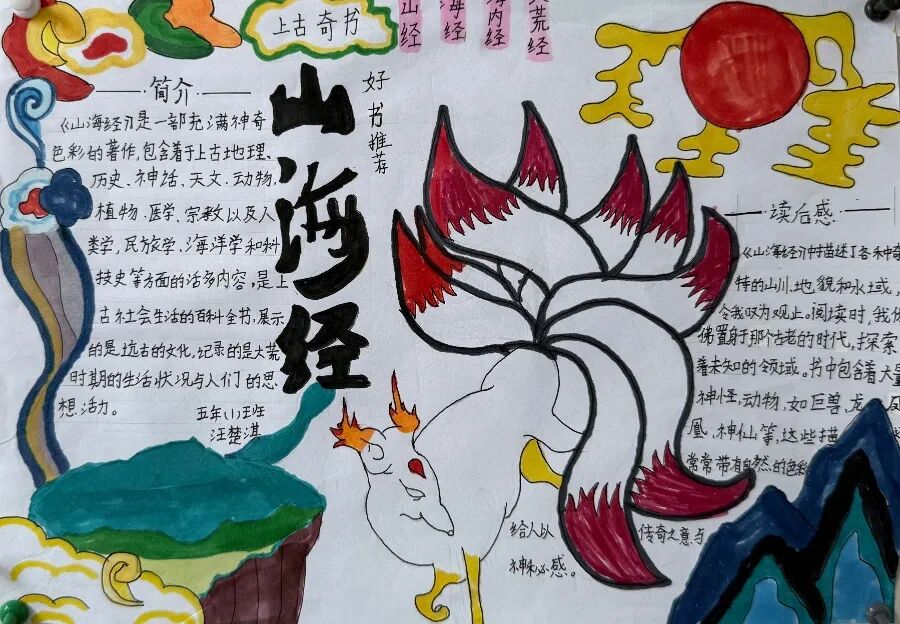 上古奇书
山经
海经
海内经
大荒经
山海经
好书推荐
简介
《山海经》是一部充满神奇
色彩的著作,包含着于上古地理、
历史、神话、天文、动物、
植物、医学、宗教以及人
类学,民族学、海洋学和科
技史等方面的活多内容,是上
古社会生活的百科全书,展示
的是远古的文化,纪录的是大荒
时期的生活状况与人们的思
想活力。
五年(1)班
汪楚淇
读后感
《山海经》中描述了各种奇
特的山川、地貌和水域,
令我叹为观止。阅读时,我仿
佛置射那个古老的时代,探索
着未知的领域。书中包含着大量
神怪、动物,如巨兽、龙、凤
凰、神仙等,这些描
常常带有自然的色彩
给人以
传奇之意与
神秘感。